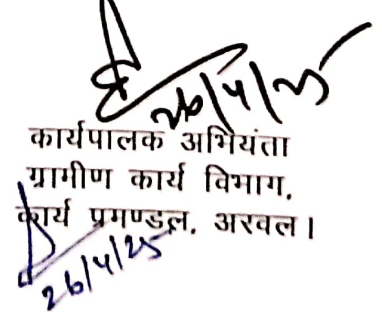 26/4/25
कार्यपालक अभियंता
ग्रामीण कार्य विभाग,
कार्य प्रमण्डल, अरवल।
26/4/25